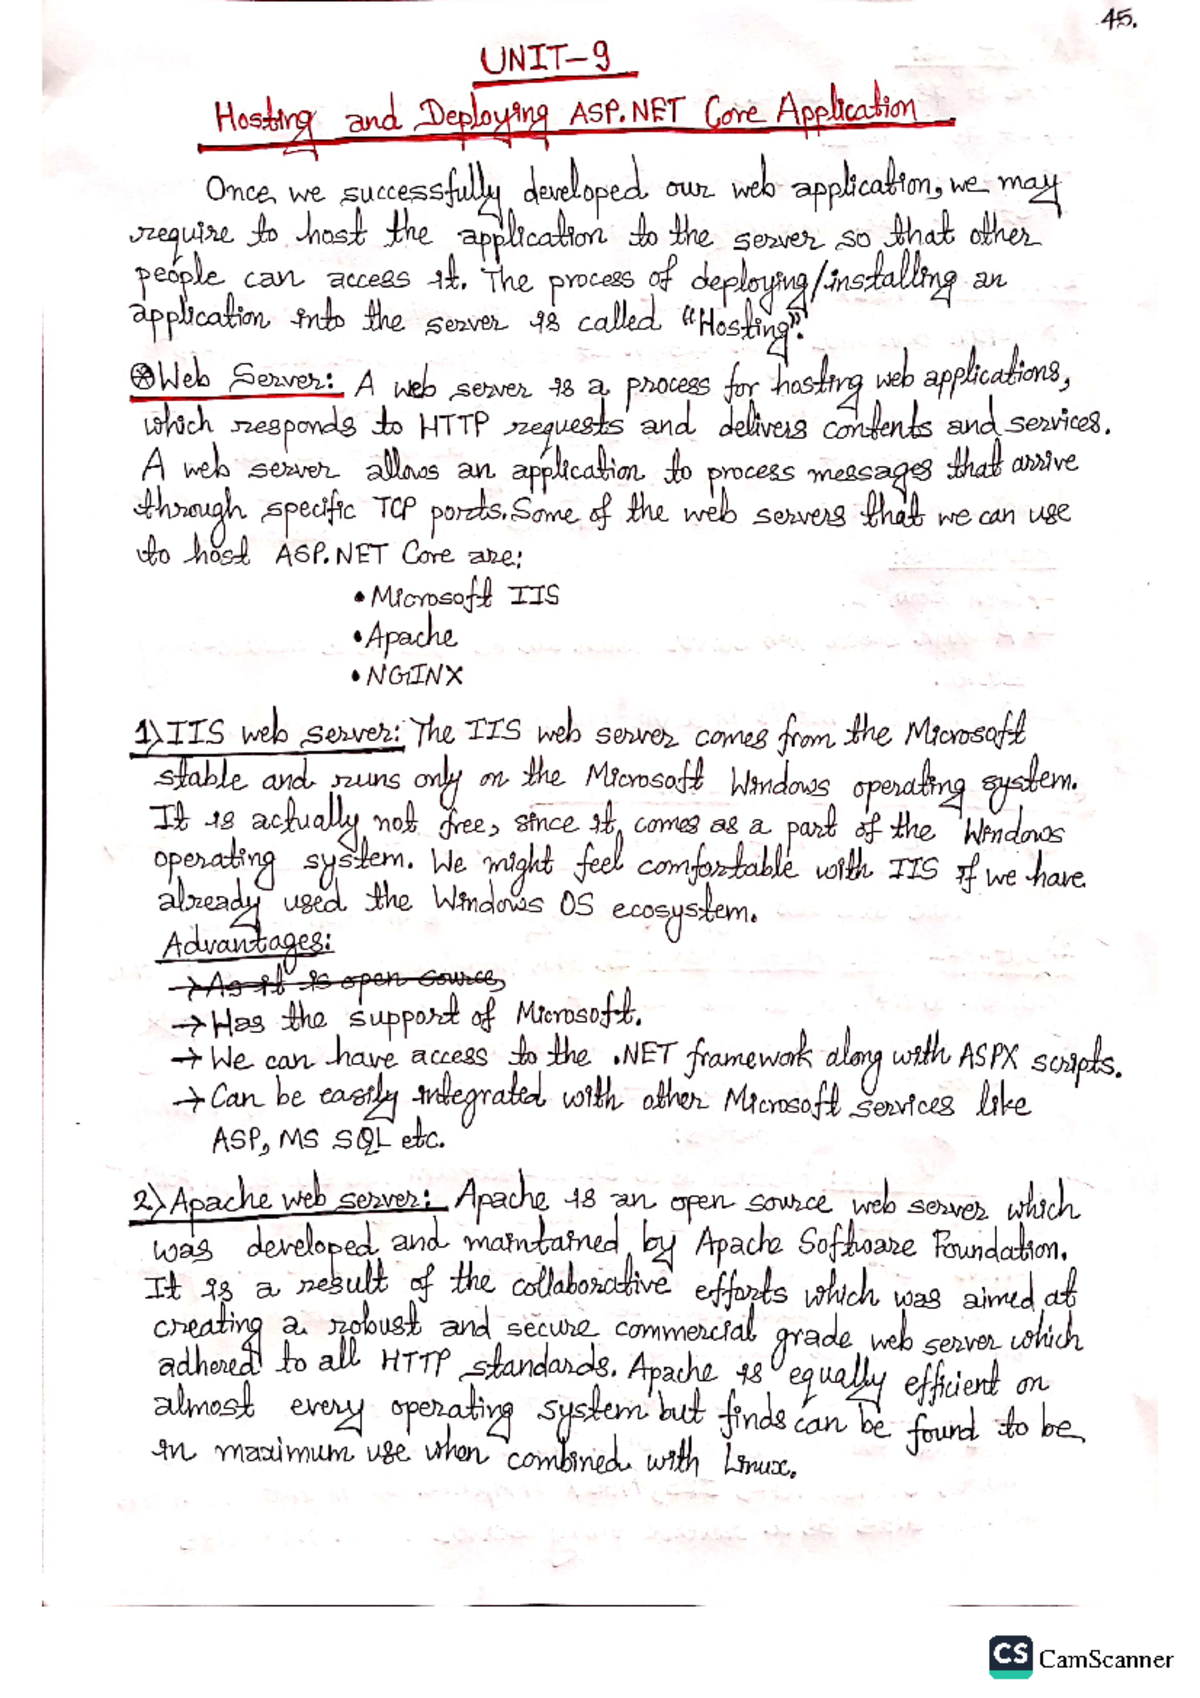 45.
UNIT-9
Hosting and Deploying ASP.NET Core Application
Once, we successfully developed our web application, we may
require to host the application to the server so that other
people can access it. The process of deploying/installing an
application into the server is called "Hosting".
⊗Web Server: A web server is a process for hosting web applications,
which responds to HTTP requests and delivers contents and services.
A web server allows an application to process messages that arrive
through specific TCP ports. Some of the web servers that we can use
to host ASP.NET Core are:
• Microsoft IIS
• Apache
• NGINX
1) IIS web server: The IIS web server comes from the Microsoft
stable and runs only on the Microsoft Windows operating system.
It is actually not free, since it comes as a part of the Windows
operating system. We might feel comfortable with IIS if we have
already used the Windows OS ecosystem.
Advantages:
→ As it is open source,
→ Has the support of Microsoft.
→ We can have access to the .NET framework along with ASPX scripts.
→ Can be easily integrated with other Microsoft services like
ASP, MS SQL etc.
2) Apache web server: Apache is an open source web server which
was developed and maintained by Apache Software Foundation.
It is a result of the collaborative efforts which was aimed at
creating a robust and secure commercial grade web server which
adhered to all HTTP standards. Apache is equally efficient on
almost every operating system but finds can be found to be
in maximum use when combined with Linux.
CS CamScanner